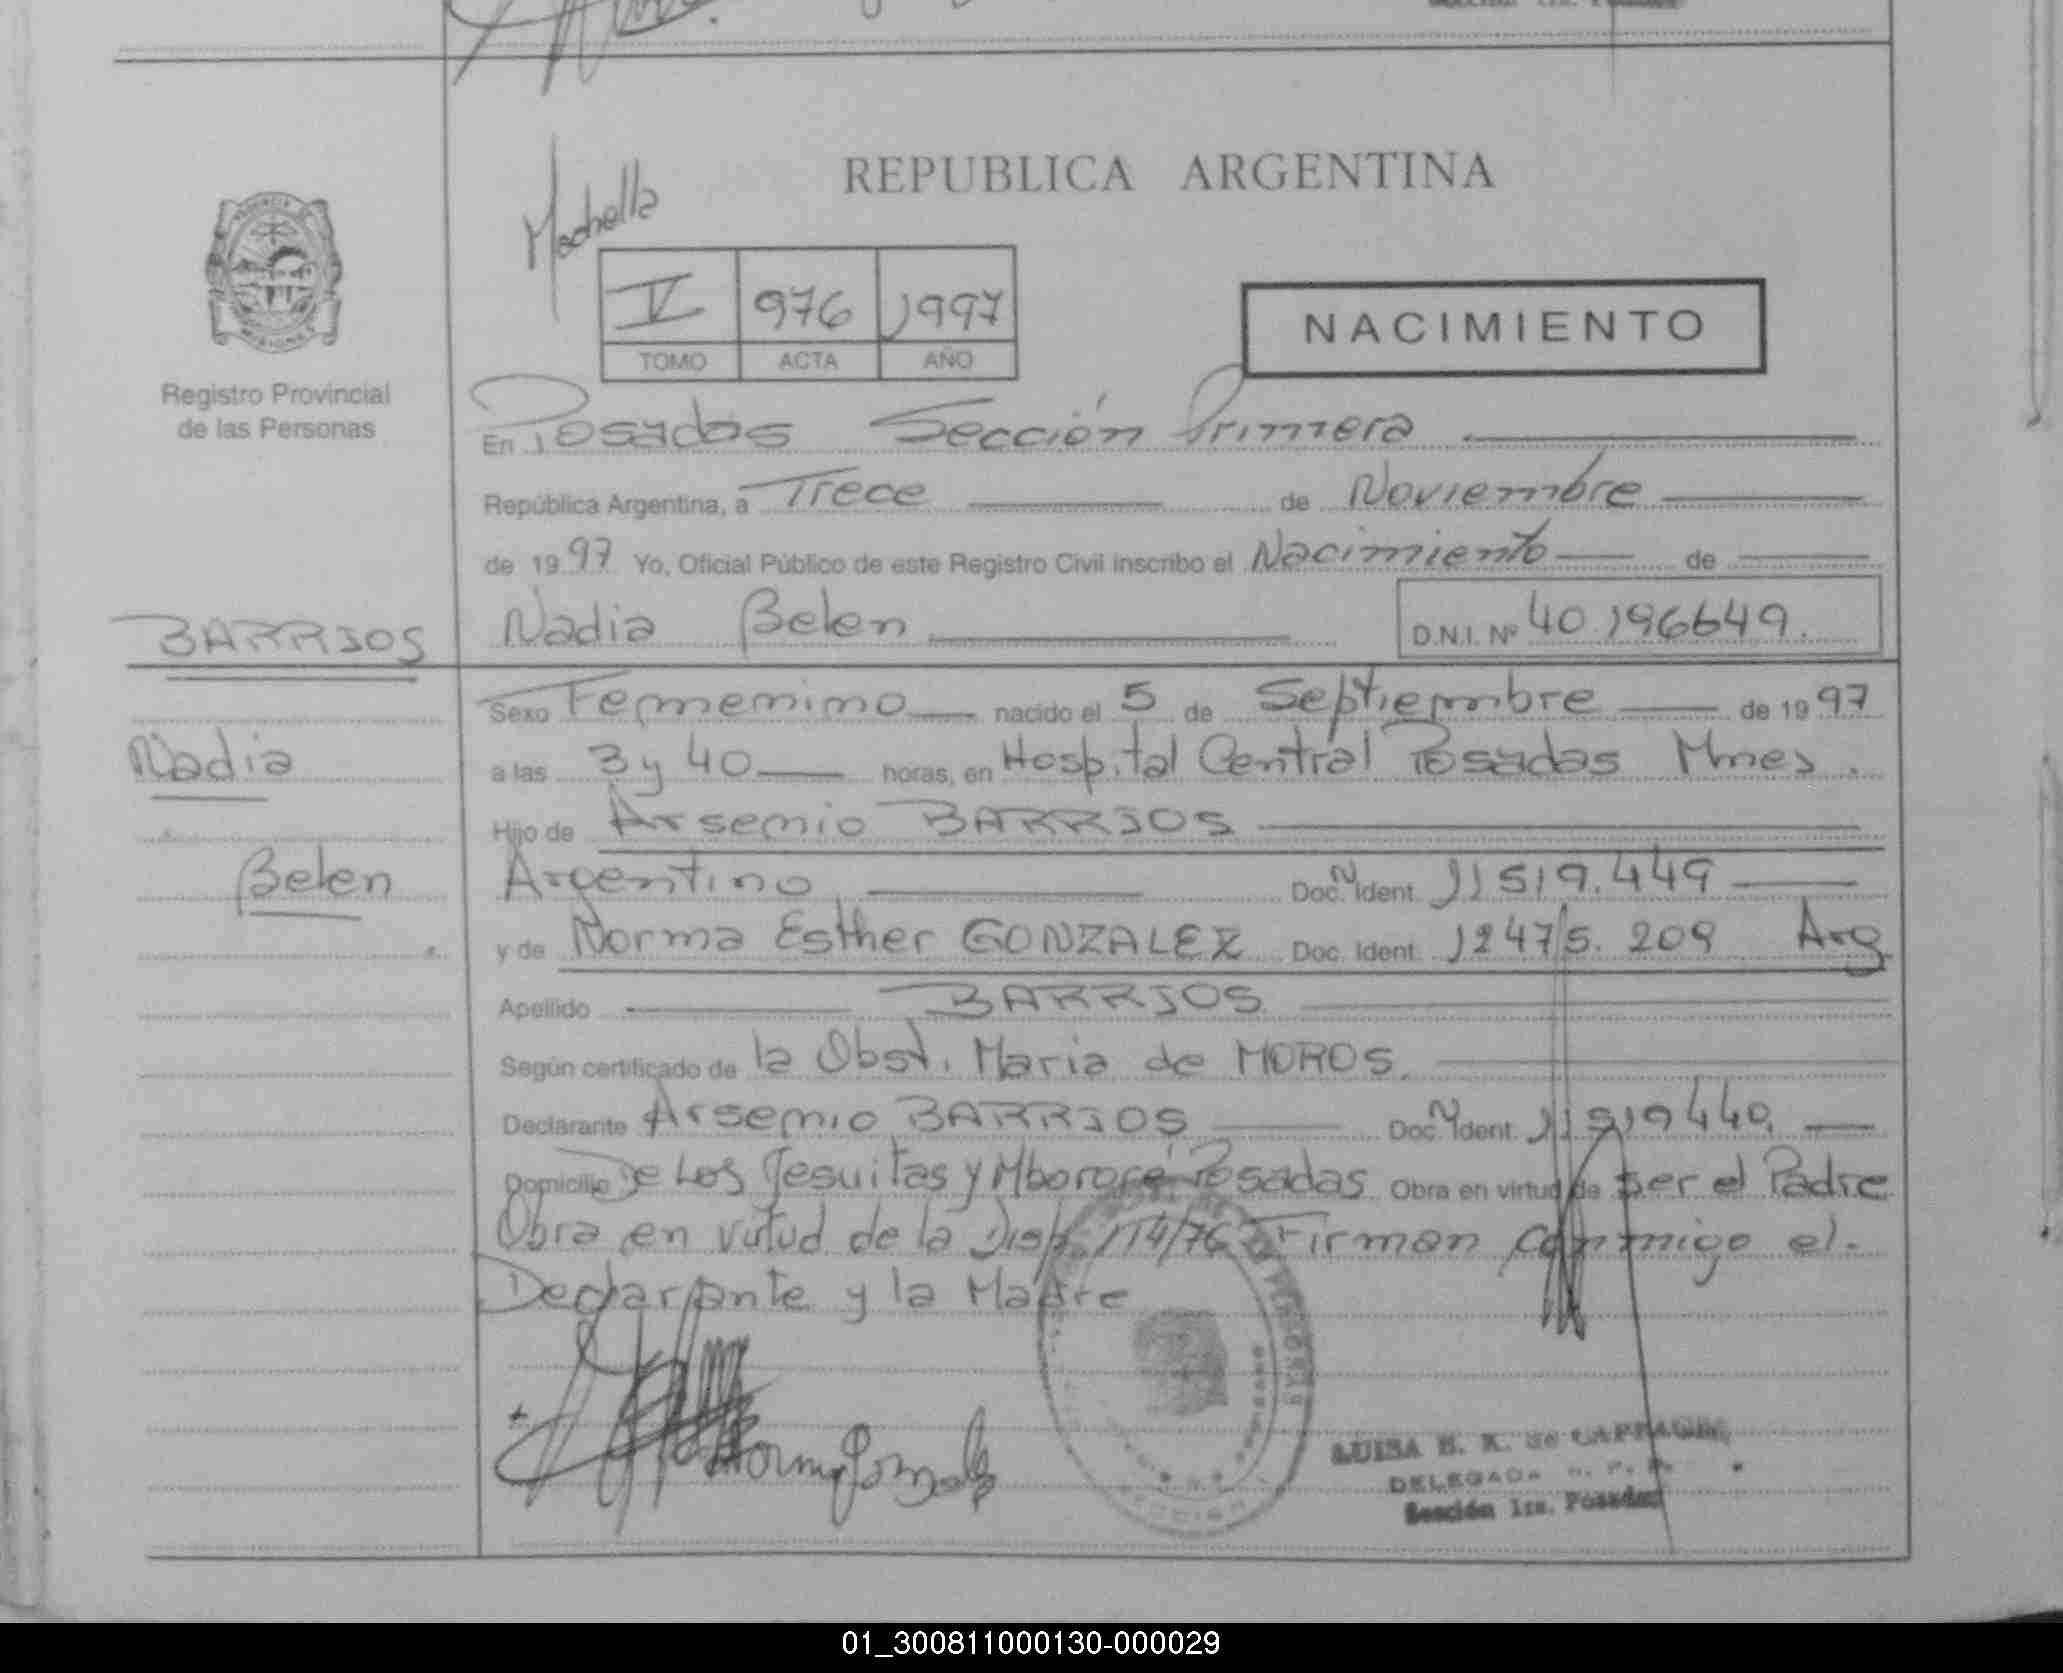 REPUBLICA ARGENTINA
Machella
V 976 1997
TOMO ACTA AÑO
NACIMIENTO
Registro Provincial
de las Personas
En Posadas Sección Primera
República Argentina, a Trece de Noviembre
de 1997 Yo, Oficial Público de este Registro Civil inscribo el Nacimiento de
BARRIOS
Nadia Belen D.N.I. Nº 40.196649.
Sexo Femenino nacido el 5 de Septiembre de 1997
Nadia
a las 3 y 40 horas, en Hospital Central Posadas Mnes.
Hijo de Arsenio BARRIOS
Belen
Argentino Doc. N Ident. 11519.449
y de Norma Esther GONZALEZ Doc. Ident. 12475.209 Arg
Apellido BARRIOS
Según certificado de la Obst. Maria de MOROS.
Declarante Arsenio BARRIOS Doc. N Ident. 11519440.
Domicilio De Los Jesuitas y Mbororé Posadas Obra en virtud de ser el Padre
Obra en virtud de la Disp. 114/76 Firman conmigo el
Declarante y la Madre
Norma Gonzalez
LUISA B. K. de
DELEGADA R. P. P.
Sección 1ra. Posadas
01_300811000130-000029